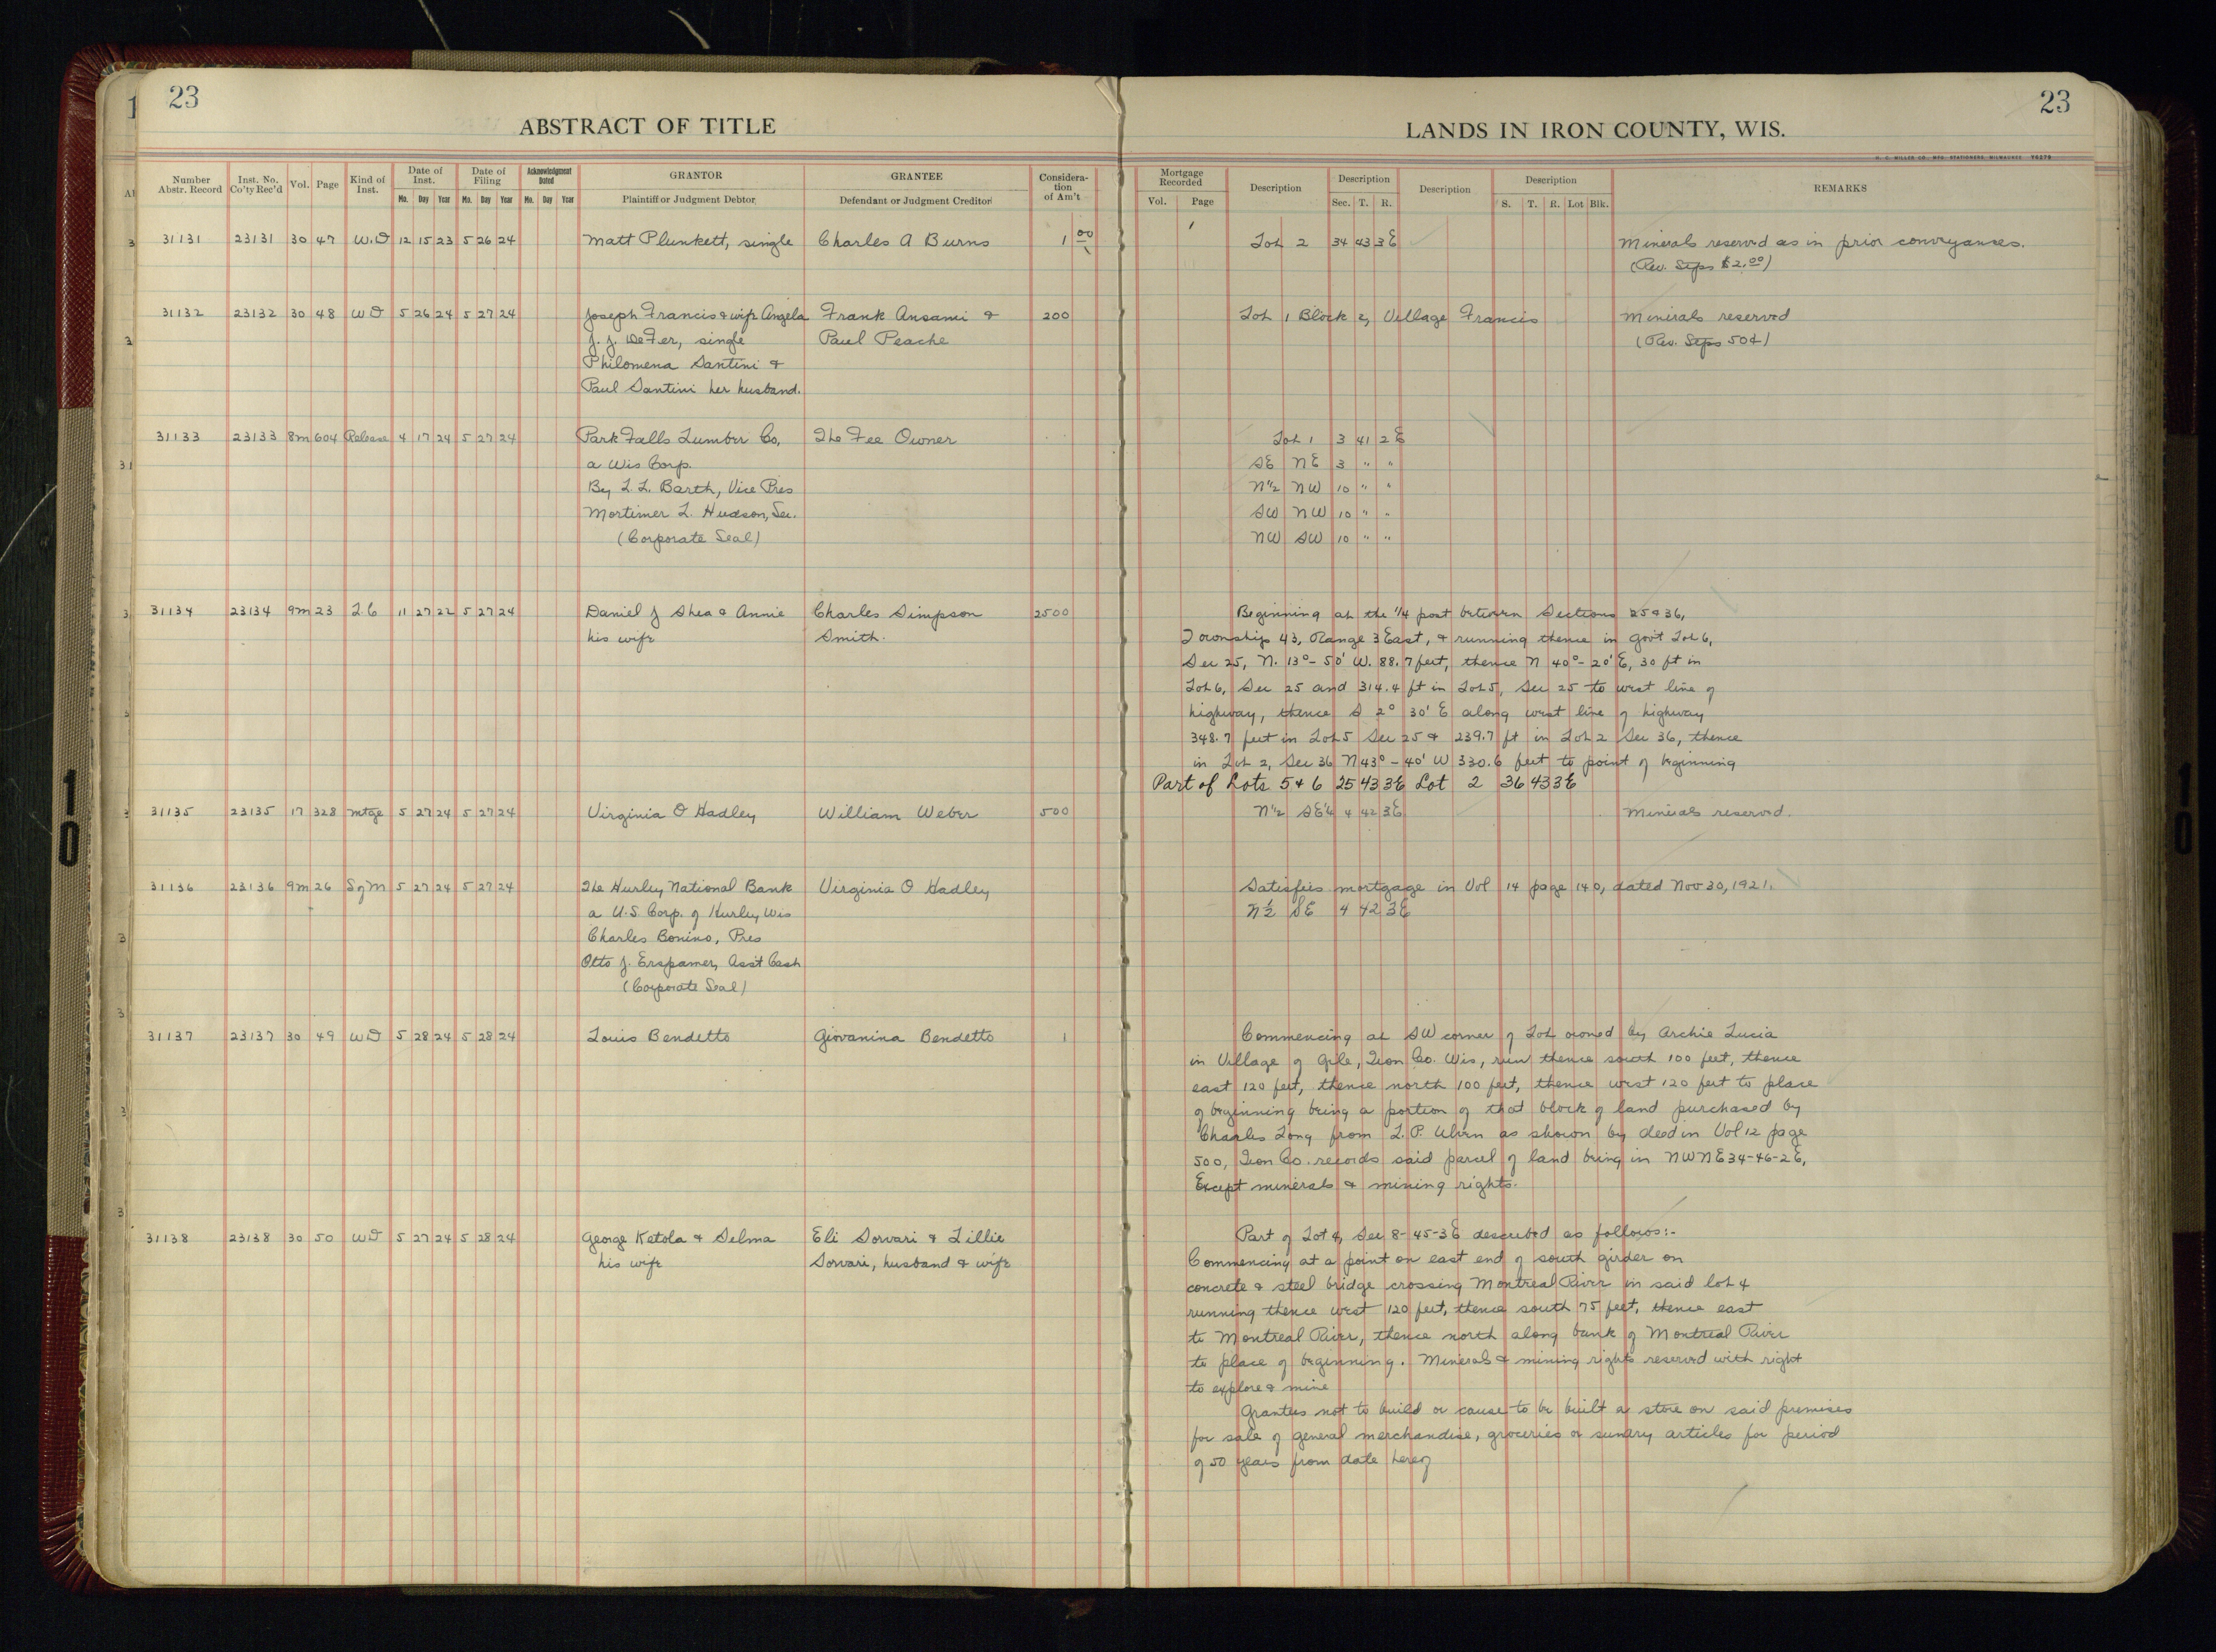 23
ABSTRACT OF TITLE
Number Abstr. Record | Inst. No. Co'ty Rec'd | Vol. | Page | Kind of Inst. | Date of Inst. Mo. Day Year | Date of Filing Mo. Day Year | Acknowledgment Dated Mo. Day Year | GRANTOR Plaintiff or Judgment Debtor | GRANTEE Defendant or Judgment Creditor | Considera-tion of Am't
31131 23131 30 47 W.D 12 15 23 5 26 24 Matt Plunkett, single Charles A Burns 1 00
31132 23132 30 48 WD 5 26 24 5 27 24 Joseph Francis & wife Angela Frank Ansami & 200
J. J. DeFer, single Paul Peache
Philomena Santini &
Paul Santini her husband.
31133 23133 8m 604 Release 4 17 24 5 27 24 Park Falls Lumber Co, The Fee Owner
a Wis Corp.
By L. L. Barth, Vice Pres
Mortimer L. Hudson, Sec.
(Corporate Seal)
31134 23134 9m 23 L.C 11 27 22 5 27 24 Daniel J Shea & Annie Charles Simpson 2500
his wife Smith.
31135 23135 17 328 mtge 5 27 24 5 27 24 Virginia O Hadley William Weber 500
31136 23136 9m 26 S of M 5 27 24 5 27 24 The Hurley National Bank Virginia O Hadley
a U.S. Corp. of Hurley Wis
Charles Bonino, Pres
Otto J. Erspamer, Ass't Cash
(Corporate Seal)
31137 23137 30 49 WD 5 28 24 5 28 24 Louis Bendetto Giovanina Bendetto 1
31138 23138 30 50 WD 5 27 24 5 28 24 George Ketola & Selma Eli Sorvari & Lillie
his wife Sorvari, husband & wife
23
LANDS IN IRON COUNTY, WIS.
H. C. MILLER CO., MFG. STATIONERS, MILWAUKEE Y6279
Mortgage Recorded Vol. Page | Description | Description Sec. T. R. | Description | Description S. T. R. Lot Blk. | REMARKS
Lot 2 34 43 3E Minerals reserved as in prior conveyances.
(Rev. Stps $2.00)
Lot 1 Block 2, Village Francis Minerals reserved
(Rev. Stps 50¢)
Lot 1 3 41 2E
SE NE 3 " "
N 1/2 NW 10 " "
SW NW 10 " "
NW SW 10 " "
Beginning at the 1/4 post between Sections 25 & 36,
Township 43, Range 3 East, & running thence in gov't Lot 6,
Sec 25, N. 13°-50' W. 88.7 feet, thence N 40°-20' E, 30 ft in
Lot 6, Sec 25 and 314.4 ft in Lot 5, Sec 25 to west line of
highway, thence S 2° 30' E along west line of highway
348.7 feet in Lot 5 Sec 25 & 239.7 ft in Lot 2 Sec 36, thence
in Lot 2, Sec 36 N 43°-40' W 330.6 feet to point of beginning
Part of Lots 5 & 6 25 43 3E Lot 2 36 43 3E
N 1/2 SE 1/4 4 42 3E Minerals reserved.
Satisfies mortgage in Vol 14 page 140, dated Nov 30, 1921.
N 1/2 SE 4 42 3E
Commencing at SW corner of Lot owned by Archie Lucia
in Village of Gile, Iron Co. Wis, run thence south 100 feet, thence
east 120 feet, thence north 100 feet, thence west 120 feet to place
of beginning being a portion of that block of land purchased by
Charles Long from L. P. as shown by deed in Vol 12 page
500, Iron Co. records said parcel of land being in NWNE 34-46-2E,
Except minerals & mining rights.
Part of Lot 4, Sec 8-45-3E described as follows:-
Commencing at a point on east end of south girder on
concrete & steel bridge crossing Montreal River in said lot 4
running thence west 120 feet, thence south 75 feet, thence east
to Montreal River, thence north along bank of Montreal River
to place of beginning. Minerals & mining rights reserved with right
to explore & mine
Grantees not to build or cause to be built a store on said premises
for sale of general merchandise, groceries or sundry articles for period
of 50 years from date hereof
10
10